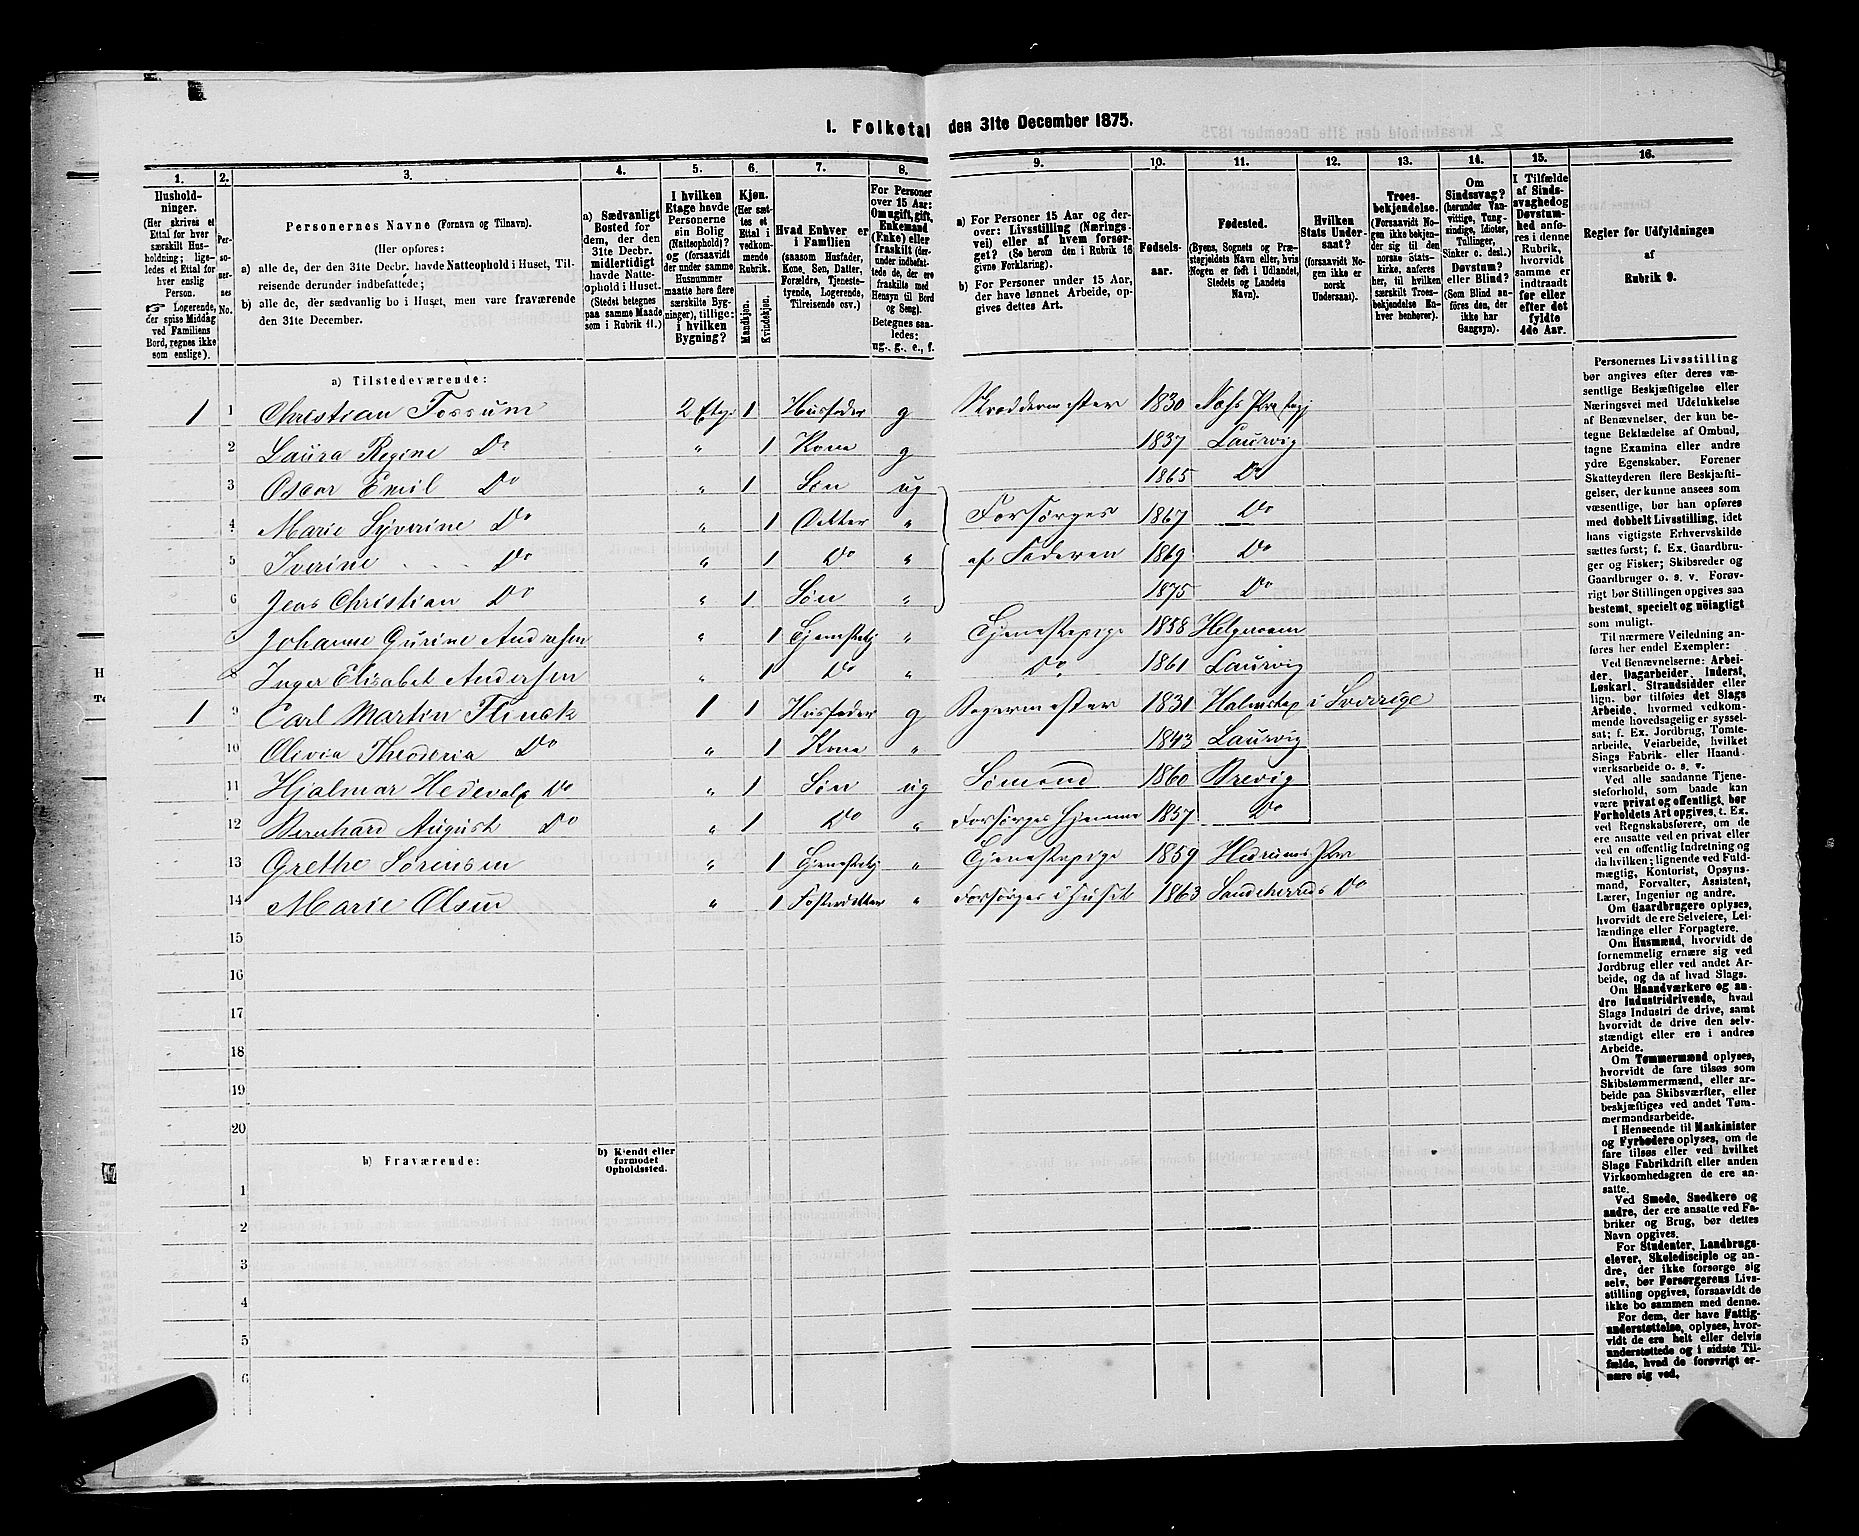 I. Folketal den 31te December 1875.
1. 2. 3. 4. 5. 6. 7. 8. 9. 10. 11. 12. 13. 14. 15. 16.
Husholdninger. (Her skrives et Ettal for hver særskilt Husholdning; ligeledes et Ettal for hver enslig Person. Logerende, der spise Middag ved Familiens Bord, regnes ikke som enslige).
Personernes No.
Personernes Navne (Fornavn og Tilnavn).
(Her opføres:
a) alle de, der den 31te Decbr. havde Natteophold i Huset, Tilreisende derunder indbefattede;
b) alle de, der sædvanlig bo i Huset, men vare fraværende den 31te December.
a) Sædvanligt Bosted for dem, der den 31te Decbr. midlertidigt havde Natteophold i Huset. (Stedet betegnes paa samme Maade som i Rubrik 11.)
I hvilken Etage havde Personerne sin Bolig (Natteophold)? og (forsaavidt der under samme Husnummer maatte høre flere særskilte Bygninger), tillige: i hvilken Bygning?
Kjøn. (Her sættes et Ettal i vedkommende Rubrik.
Mandkjøn. Kvindekjøn.
Hvad Enhver er i Familien (saasom Husfader, Kone, Søn, Datter, Forældre, Tjenestetyende, Logerende, Tilreisende osv.)
For Personer over 15 Aar: Om ugift, gift, Enkemand (Enke) eller fraskilt (derunder indbefattede de, der ere fraskilte med Hensyn til Bord og Seng). Betegnes saaledes: ug., g., e., f.
a) For Personer 15 Aar og derover: Livsstilling (Næringsvei) eller af hvem forsørget? (Se herom den i Rubrik 16 givne Forklaring).
b) For Personer under 15 Aar, der have lønnet Arbeide, opgives dettes Art.
Fødselsaar.
Fødested. (Byens, Sognets og Præstegjeldets Navn eller, hvis Nogen er født i Udlandet, Stedets og Landets Navn).
Hvilken Stats Undersaat? (forsaavidt Nogen ikke er norsk Undersaat).
Troesbekjendelse. (Forsaavidt Nogen ikke bekjender sig til den norske Statskirke, anføres her, til hvilken særskilt Troesbekjendelse Enhver henhører).
Om Sindssvag? (herunder Vanvittige, Tungsindige, Idioter, Tullinger, Sinker o. desl.) Døvstum? eller Blind? (Som Blind anføres den, der ikke har Gangsyn).
I Tilfælde af Sindssvaghed og Døvstumhed anføres i denne Rubrik, hvorvidt samme er indtraadt før eller efter det fyldte 4de Aar.
Regler for Udfyldningen af Rubrik 9.
a) Tilstedeværende:
1 1 Christian Tossum 2 Etg. 1 Husfader g Skræddermester 1830 Næss Præstegj
2 Laura Regine Do " 1 Kone g 1837 Laurvig
3 Oscar Emil Do " 1 Søn ug 1865 Do
4 Marie Syverine Do " 1 Datter " Forsørges 1867 Do
5 Iverine Do " 1 Do " af Faderen 1869 Do
6 Jens Christian Do " 1 Søn " 1875 Do
7 Johanne Gurine Andersen " 1 Tjenestetj " Tjenestepige 1858 Helgeroen
8 Inger Elisabet Andersen " 1 Do " Do 1861 Laurvig
1 9 Carl Martin Flinck 1 1 Husfader g Bagermester 1831 Halmstad i Sverrige
10 Olivia Theoderia Do " 1 Kone " 1843 Laurvig
11 Hjalmar Do " 1 Søn ug Sømand 1860 Brevig
12 Bernhard August Do " 1 Do " Forsørges Hjemme 1857 Do
13 Grethe Sørensen " 1 Tjenestetj " Tjenestepige 1859 Hedrums Pr
14 Marie Olsen " 1 Fosterdatter " Forsørges i Huset 1863 Sandeherreds Do
15
16
17
18
19
20
b) Fraværende: b) Kjendt eller formodet Opholdssted.
1
2
3
4
5
6
Personernes Livsstilling
bør angives efter deres væ-
sentlige Beskjæftigelse eller
Næringsvei med Udelukkelse
af Benævnelser, der kun be-
tegne Beklædelse af Ombud,
tagne Examina eller andre
ydre Egenskaber. Forener
Skatteyderen flere Beskjæfti-
gelser, der kunne ansees som
væsentlige, bør han opføres
med dobbelt Livsstilling, idet
hans vigtigste Erhvervskilde
sættes først; f. Ex. Gaardbru-
ger og Fisker; Skibsreder og
Gaardbruger o. s. v. Forøv-
rigt bør Stillingen opgives saa
bestemt, specielt og nøiagtigt
som muligt.
Til nærmere Veiledning an-
føres her endel Exempler:
Ved Benævnelserne: Arbei-
der, Dagarbeider, Inderst,
Løskarl, Strandsidder eller
lign. bør tilføies det Slags
Arbeide, hvormed vedkom-
mende hovedsagelig er syssel-
sat; f. Ex. Jordbrug, Tomte-
arbeide, Veiarbeide, hvilket
Slags Fabrik- eller Haand-
værksarbeide o. s. v.
Ved alle saadanne Tjene-
steforhold, som baade kan
være privat og offentligt, bør
Forholdets Art opgives, t. Ex.
ved Regnskabsførere, om de
ere ansatte ved en privat eller
ved en offentlig Indretning og
da hvilken; lignende ved Fuld-
mægtig, Kontorist, Opsyns-
mand, Forvalter, Assistent,
Lærer, Ingeniør og andre.
Om Gaardbrugere oplyses,
hvorvidt de ere Selveiere, Lei-
lændinge eller Forpagtere.
Om Husmænd, hvorvidt de
fornemmelig ernære sig ved
Jordbrug eller ved andet Ar-
beide, og da af hvad Slags.
Om Haandværkere og an-
dre Industridrivende, hvad
Slags Industri de drive, samt
hvorvidt de drive den selv-
stændigt eller ere i andres
Arbeide.
Om Tømmermænd oplyses,
hvorvidt de fare tilsøs som
Skibstømmermænd, eller ar-
beide paa Skibsværfter, eller
beskjæftiges ved andet Tøm-
mermandsarbeide.
I Henseende til Maskinister
og Fyrbødere oplyses, om de
fare tilsøs eller ved hvilket
Slags Fabrikdrift eller anden
Virksomhedsgren de ere an-
satte.
Ved Smede, Snedkere og
andre, der ere ansatte ved Fa-
briker og Brug, bør dettes
Navn opgives.
For Studenter, Landbrugs-
elever, Skoledisciple og an-
dre, der ikke forsørge sig
selv, bør Forsørgerens Livs-
stilling opgives, forsaavidt de
ikke bo sammen med denne.
For dem, der have Fattig-
understøttelse, oplyses, hvor-
vidt de ere helt eller delvis
understøttede og i sidste Til-
fælde, hvad de forøvrigt er-
nære sig ved.